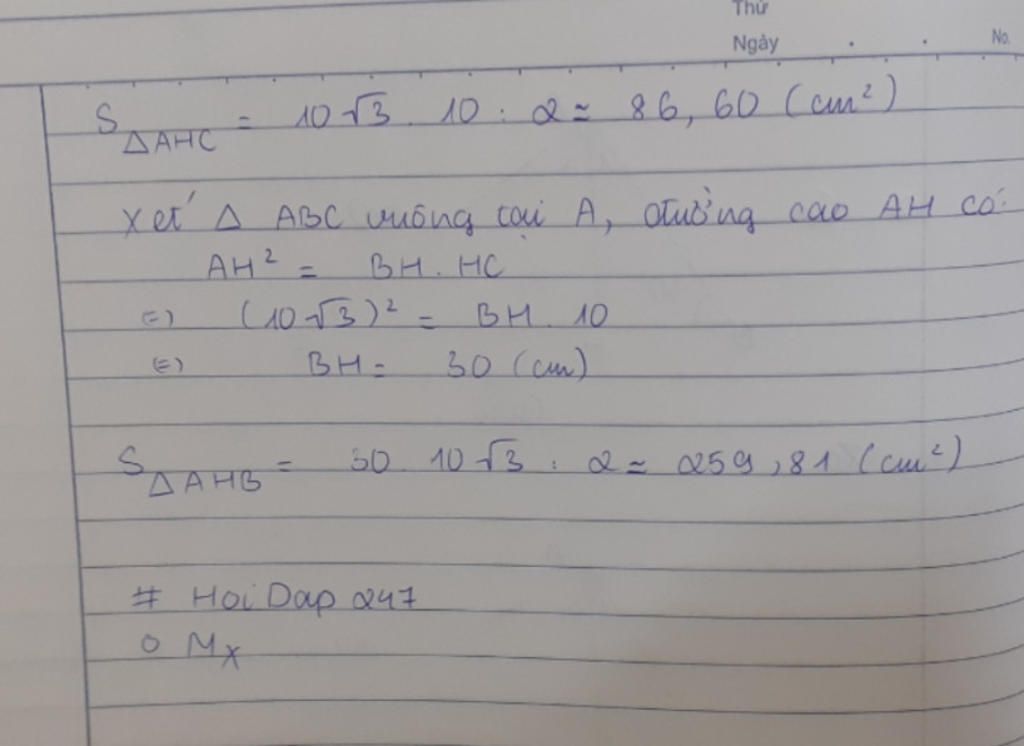 Thứ
Ngày . . No.
S△AHC = 10√3 . 10 : 2 ≃ 86,60 (cm²)
Xét △ ABC vuông tại A, đường cao AH có:
AH² = BH . HC
(=) (10√3)² = BH . 10
(=) BH = 30 (cm)
S△AHB = 30 . 10√3 : 2 ≃ 259,81 (cm²)
# HoiDap247
o Mx